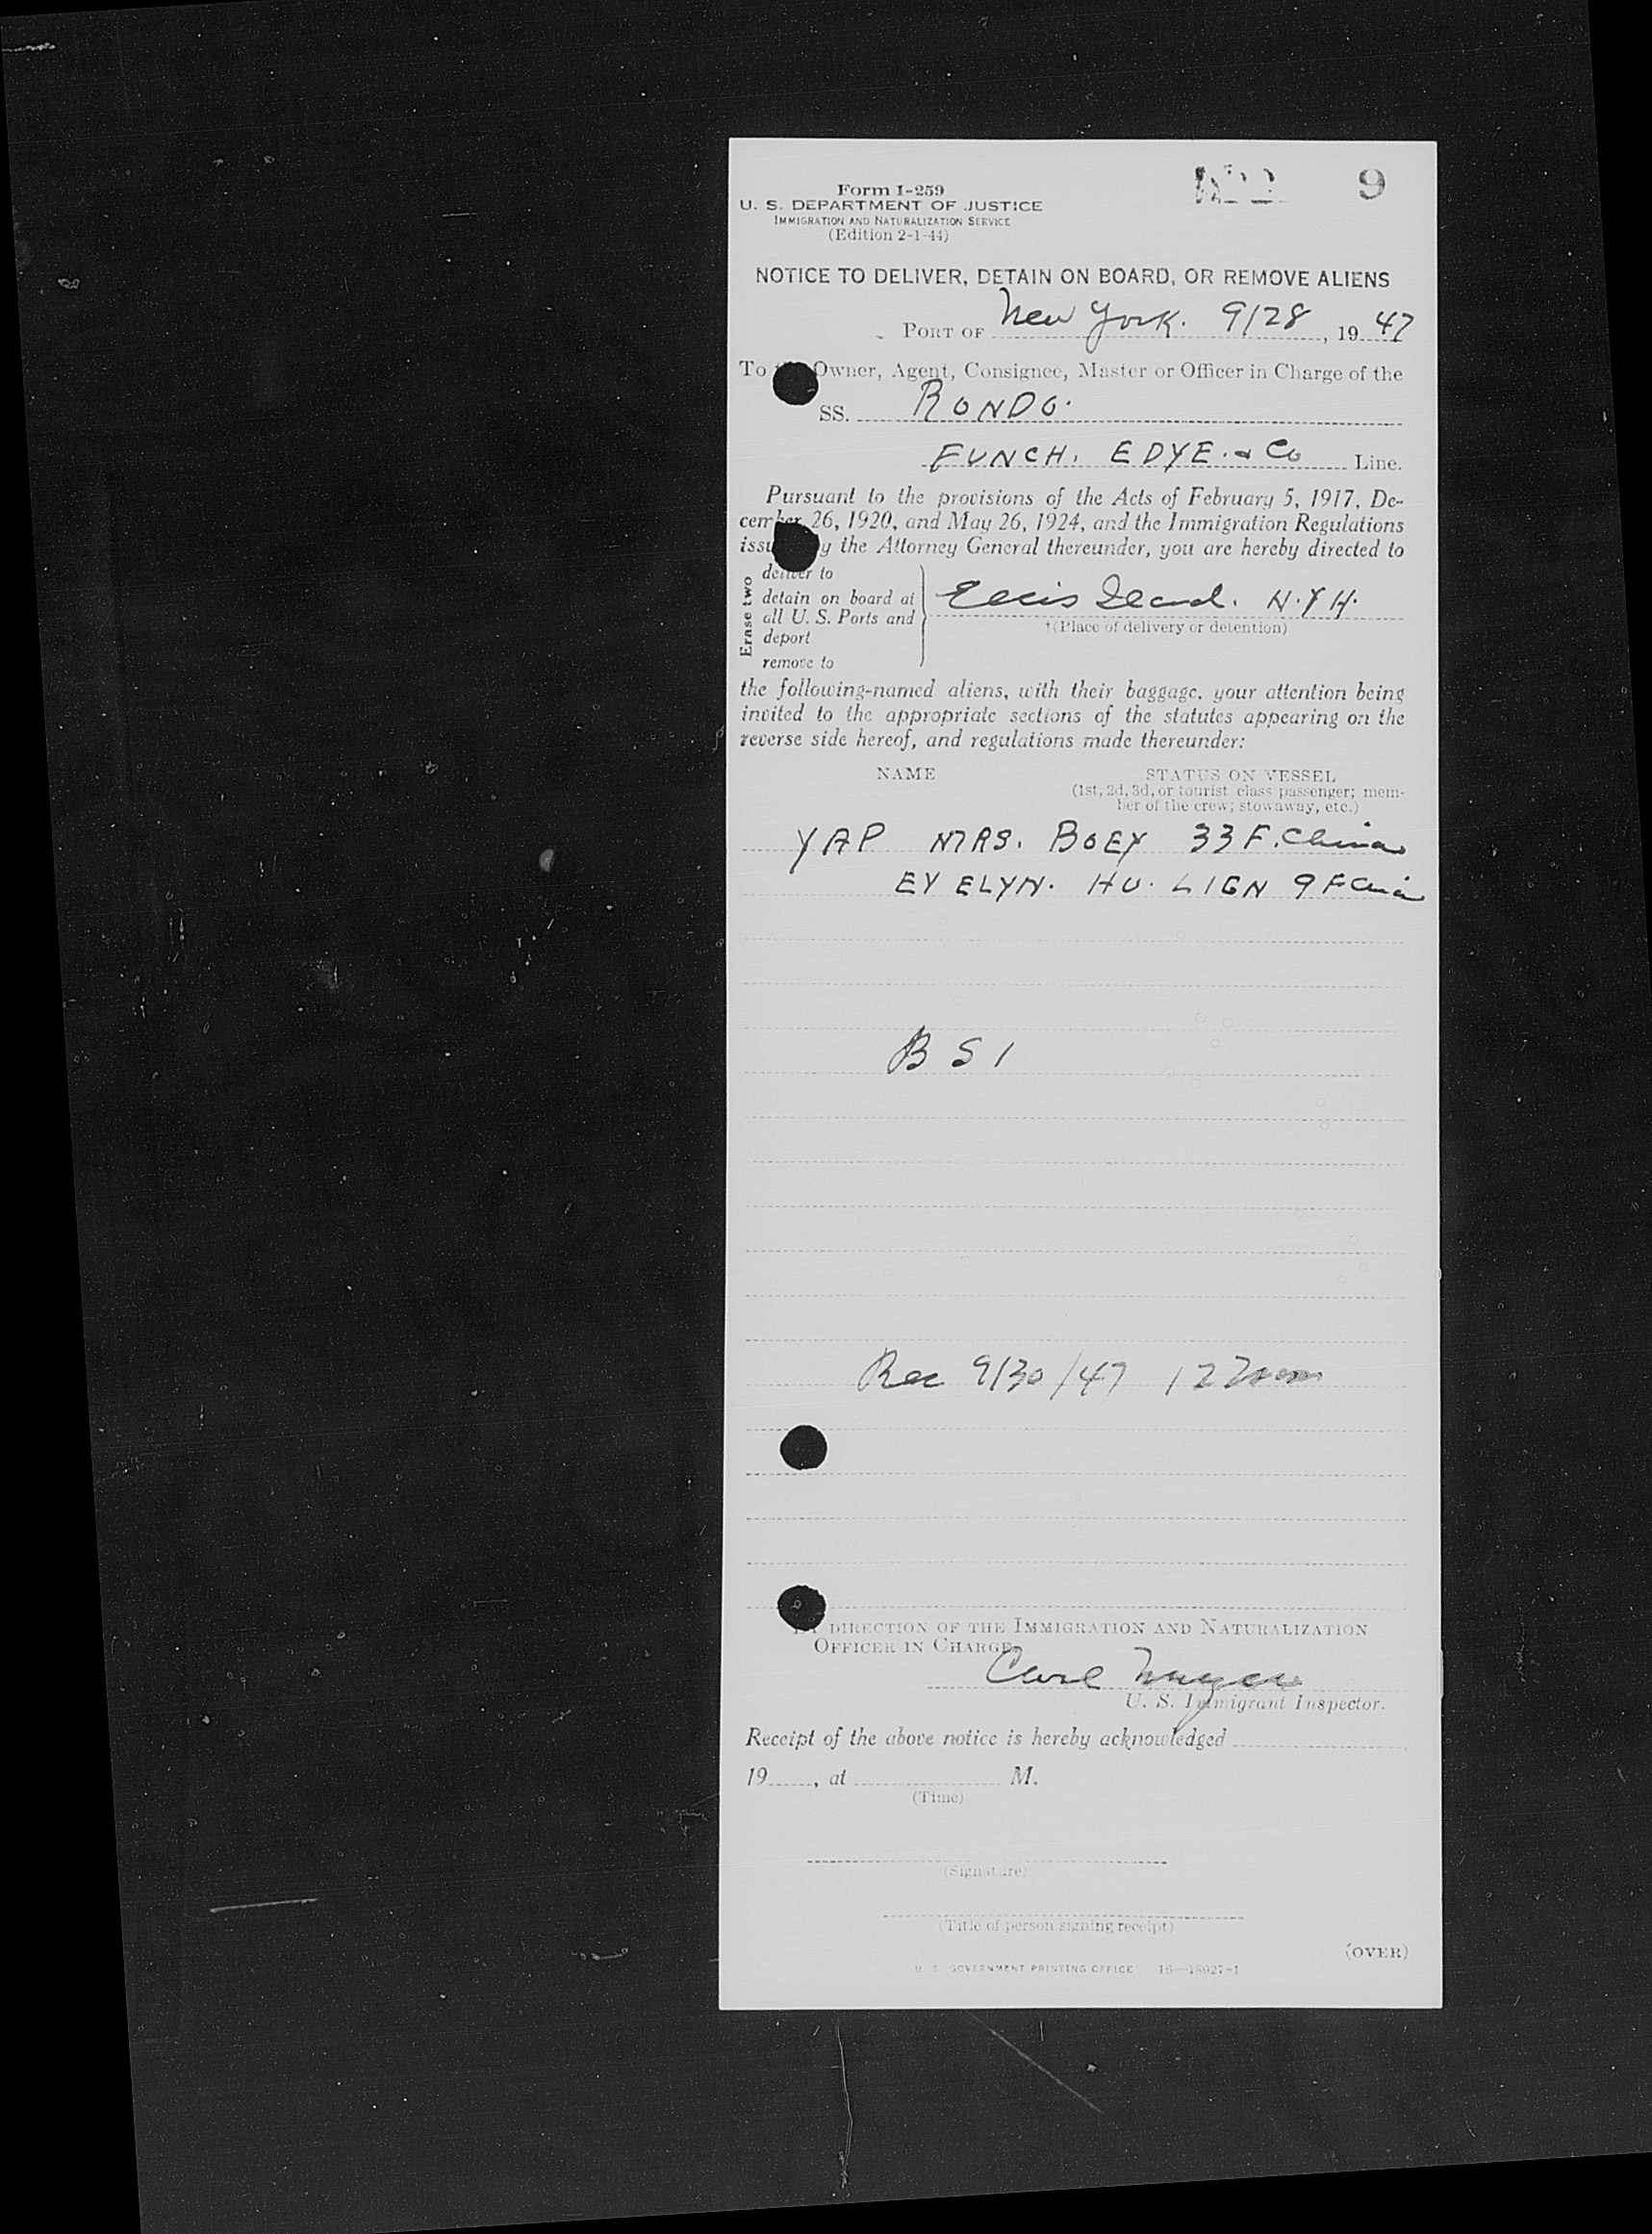 9
Form I-259
U. S. DEPARTMENT OF JUSTICE
IMMIGRATION AND NATURALIZATION SERVICE
(Edition 2-1-44)
NOTICE TO DELIVER, DETAIN ON BOARD, OR REMOVE ALIENS
PORT OF New York. 9/28, 19 47
To Owner, Agent, Consignee, Master or Officer in Charge of the
SS. RONDO.
FUNCH. EDYE. & Co Line.
Pursuant to the provisions of the Acts of February 5, 1917, De-
cember 26, 1920, and May 26, 1924, and the Immigration Regulations
issu y the Attorney General thereunder, you are hereby directed to
Erase two
deliver to
detain on board at
all U. S. Ports and
deport
remove to
Ellis Island. N.Y.H.
†(Place of delivery or detention)
the following-named aliens, with their baggage, your attention being
invited to the appropriate sections of the statutes appearing on the
reverse side hereof, and regulations made thereunder:
NAME STATUS ON VESSEL
(1st, 2d, 3d, or tourist class passenger; mem-
ber of the crew; stowaway, etc.)
YAP MRS. BOEY 33 F. China
EVELYN. HU. LIGN 9 F China
B S I
Rec 9/30/47 12 Noon
DIRECTION OF THE IMMIGRATION AND NATURALIZATION
OFFICER IN CHARGE
Carl
U. S. Immigrant Inspector.
Receipt of the above notice is hereby acknowledged
19 , at M.
(Time)
(Signature)
(Title of person signing receipt)
(OVER)
U. S. GOVERNMENT PRINTING OFFICE 16—18027-1